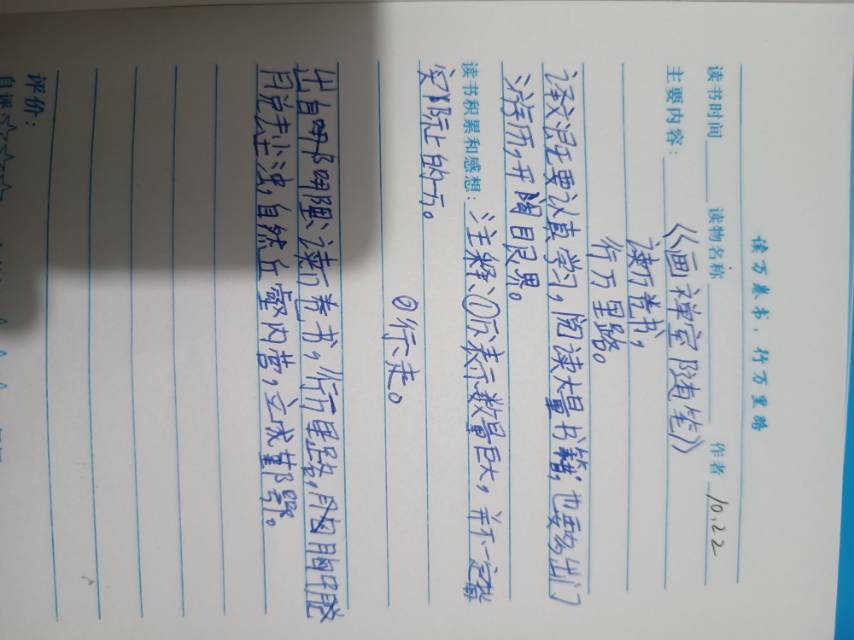 读万卷书，行万里路
读书时间 读物名称 作者 10.22
主要内容： 《画禅室随笔》
读万卷书，
行万里路。
译文：既要认真学习，阅读大量书籍，也要多出门
游历，开阔眼界。
读书积累和感想：注释：①万：表示数量巨大，并不一定指
实际上的万。
②行：走。
出自明 读万卷书，行万里路，胸
自然丘壑内营，立成鄞鄂。
评价：
自评☆☆☆☆